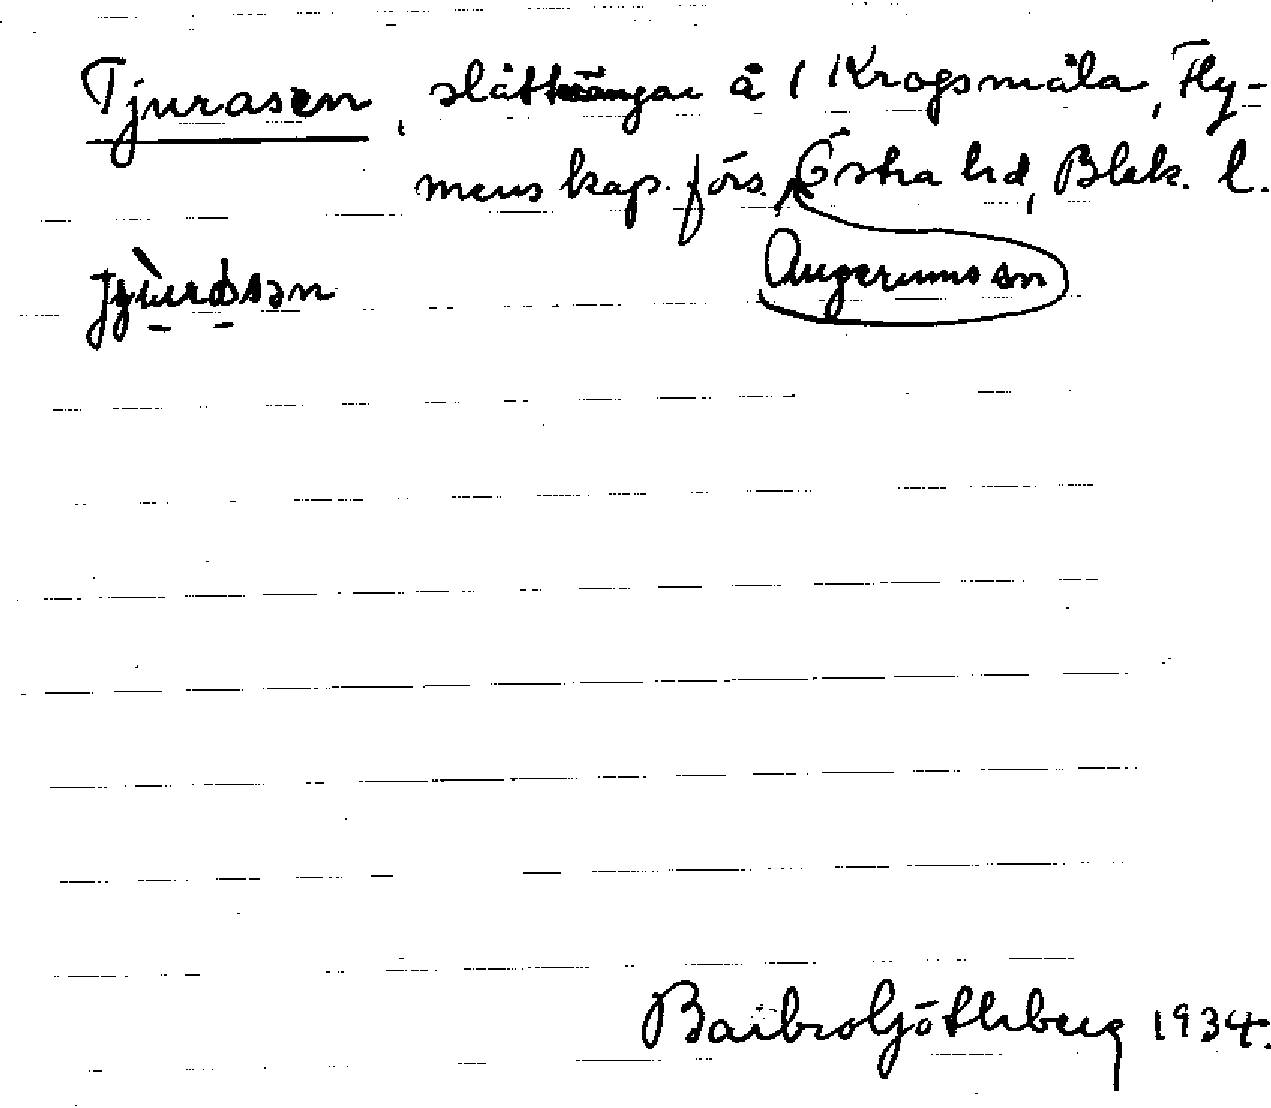 Tjurasen, slåttängar å 1 Krogsmåla, Fly-
mens kap. förs. Östra hd, Blek. l.
Augerums sn
Barbro Göthberg 1934.